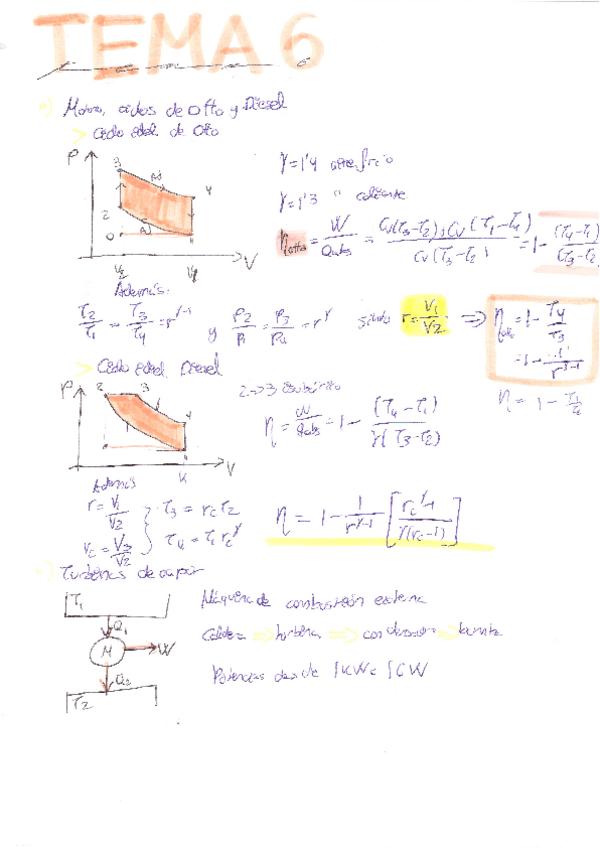 TEMA 6
Motores, ciclos de Otto y Diesel
> Ciclo ideal de Otto
P 3 Ad 4 2 Ad 0 1 V
V₂ V₁
γ=1'4 aire frío
γ=1'3 " caliente
η_otto = W/Qabs = Cv(T3-T2)+Cv(T1-T4)/Cv(T3-T2) = 1 - (T4-T1)/(T3-T2)
Además:
T2/T1 = T3/T4 = r^γ-1 y P2/P1 = P3/P4 = r^γ siendo r = V1/V2 => η = 1 - T4/T3
= 1 - 1/r^γ-1
> Ciclo ideal Diesel
η = 1 - T1/T2
P 2 3 4 1 V
2->3 isobárico
η = W/Qabs = 1 - (T4-T1)/γ(T3-T2)
Además
r = V1/V2
rc = V3/V2
T3 = rc T2
T4 = T1 rc^γ
η = 1 - 1/r^γ-1 [rc^γ-1/γ(rc-1)]
Turbinas de vapor
T1
Q1
M → W
Q2
T2
Máquina de combustión externa
Caldera => turbina => condensador => bomba
Potencias desde 1KW a 1GW